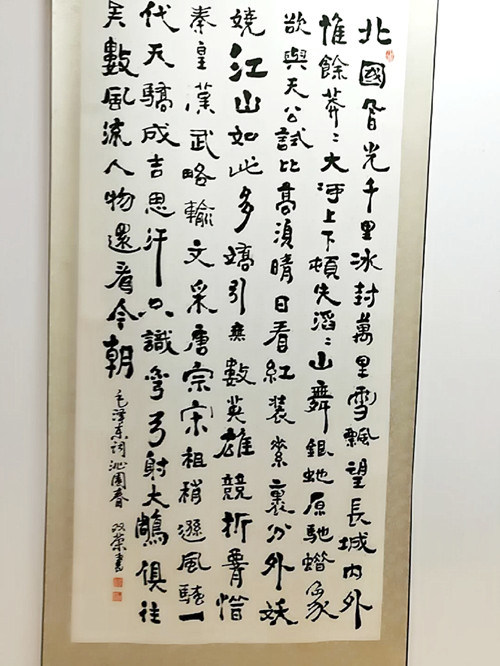 北國風光千里冰封萬里雪飄望長城內外
惟餘莽〻大河上下頓失滔〻山舞銀蛇原馳蠟象
欲與天公試比高須晴日看紅裝素裹分外妖
嬈江山如此多嬌引無數英雄競折腰惜
秦皇漢武略輸文采唐宗宋祖稍遜風騷一
代天驕成吉思汗只識彎弓射大鵰俱往
矣數風流人物還看今朝
毛澤東詞沁園春 双榮書